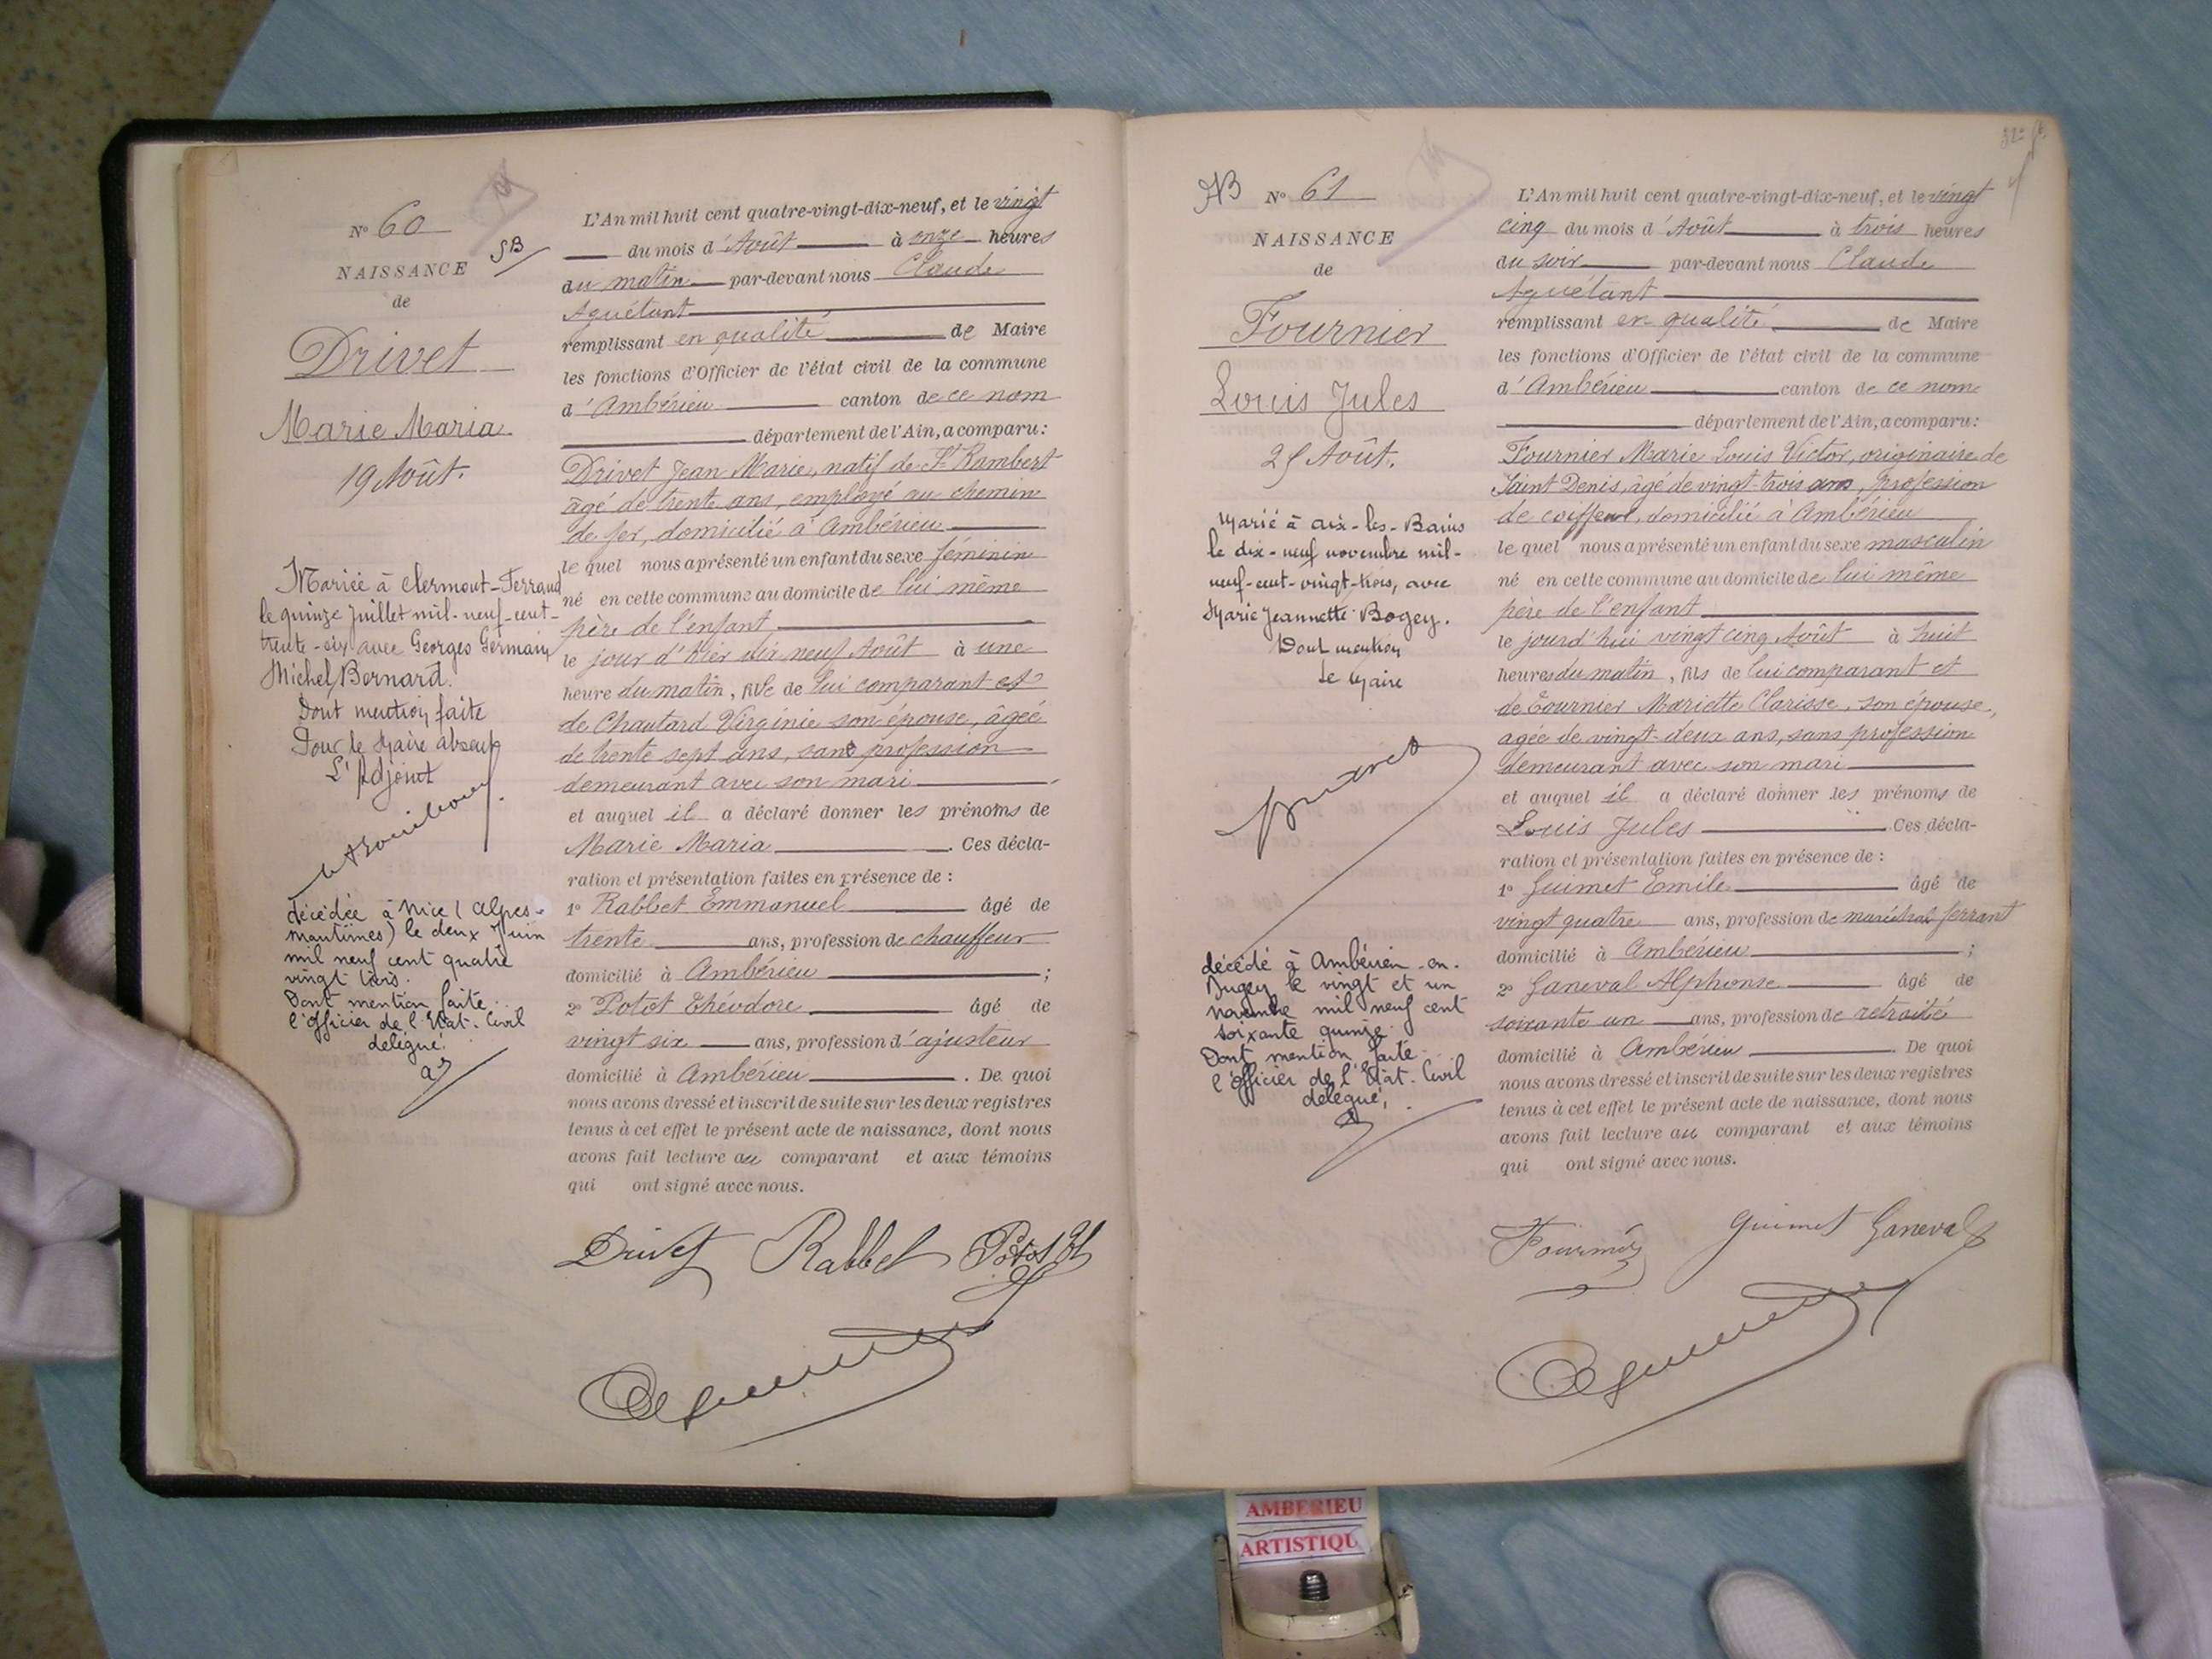 N° 60
SB
NAISSANCE
de
Drivet
Marie Maria
19 Août.
Mariée à Clermont-Ferrand
le quinze juillet mil-neuf-cent-
trente-six avec Georges Germain
Michel Bernard.
Dont mention faite
Pour le Maire absent
L'Adjoint
décédée à Nice (Alpes-
maritimes) le deux Juin
mil neuf cent quatre
vingt trois.
Dont mention faite
l'officier de l'Etat-Civil
délégué.
L'An mil huit cent quatre-vingt-dix-neuf, et le vingt
du mois d'Août à onze heures
du matin par-devant nous Claude
Aguétant
remplissant en qualité de Maire
les fonctions d'Officier de l'état civil de la commune
d'Ambérieu canton de ce nom
département de l'Ain, a comparu:
Drivet Jean Marie, natif de St Rambert
âgé de trente ans, employé au chemin
de fer, domicilié à Ambérieu
le quel nous a présenté un enfant du sexe féminin
né en cette commune au domicile de lui même
père de l'enfant
le jour d'hier dix neuf Août à une
heure du matin, fille de lui comparant et
de Chautard Virginie son épouse, âgée
de trente sept ans, sans profession
demeurant avec son mari
et auquel il a déclaré donner les prénoms de
Marie Maria. Ces décla-
ration et présentation faites en présence de :
1° Rabbet Emmanuel âgé de
trente ans, profession de chauffeur
domicilié à Ambérieu ;
2° Potot Théodore âgé de
vingt six ans, profession d'ajusteur
domicilié à Ambérieu. De quoi
nous avons dressé et inscrit de suite sur les deux registres
tenus à cet effet le présent acte de naissance, dont nous
avons fait lecture au comparant et aux témoins
qui ont signé avec nous.
Drivet Rabbet Potot Th
NB N° 61
NAISSANCE
de
Fournier
Louis Jules
25 Août.
Marié à Aix-les-Bains
le dix-neuf novembre mil-
neuf-cent-vingt-trois, avec
Marie Jeannette Bogey.
Dont mention
Le Maire
décédé à Ambérieu-en-
Bugey le vingt et un
novembre mil neuf cent
soixante quinze.
Dont mention faite
l'officier de l'Etat-Civil
délégué,
L'An mil huit cent quatre-vingt-dix-neuf, et le vingt
cinq du mois d'Août à trois heures
du soir par-devant nous Claude
Aguétant
remplissant en qualité de Maire
les fonctions d'Officier de l'état civil de la commune
d'Ambérieu canton de ce nom
département de l'Ain, a comparu:
Fournier Marie Louis Victor, originaire de
Saint Denis, âgé de vingt-trois ans, profession
de coiffeur, domicilié à Ambérieu
le quel nous a présenté un enfant du sexe masculin
né en cette commune au domicile de lui même
père de l'enfant
le jourd'hui vingt cinq Août à huit
heures du matin, fils de lui comparant et
de Tournier Mariette Clarisse, son épouse,
agée de vingt-deux ans, sans profession
demeurant avec son mari
et auquel il a déclaré donner les prénoms de
Louis Jules. Ces décla-
ration et présentation faites en présence de :
1° Guimet Emile âgé de
vingt quatre ans, profession de maréchal ferrant
domicilié à Ambérieu ;
2° Ganeval Alphonse âgé de
soixante un ans, profession de retraité
domicilié à Ambérieu. De quoi
nous avons dressé et inscrit de suite sur les deux registres
tenus à cet effet le présent acte de naissance, dont nous
avons fait lecture au comparant et aux témoins
qui ont signé avec nous.
Fournier Guimet Ganeval
AMBERIEU
ARTISTIQU